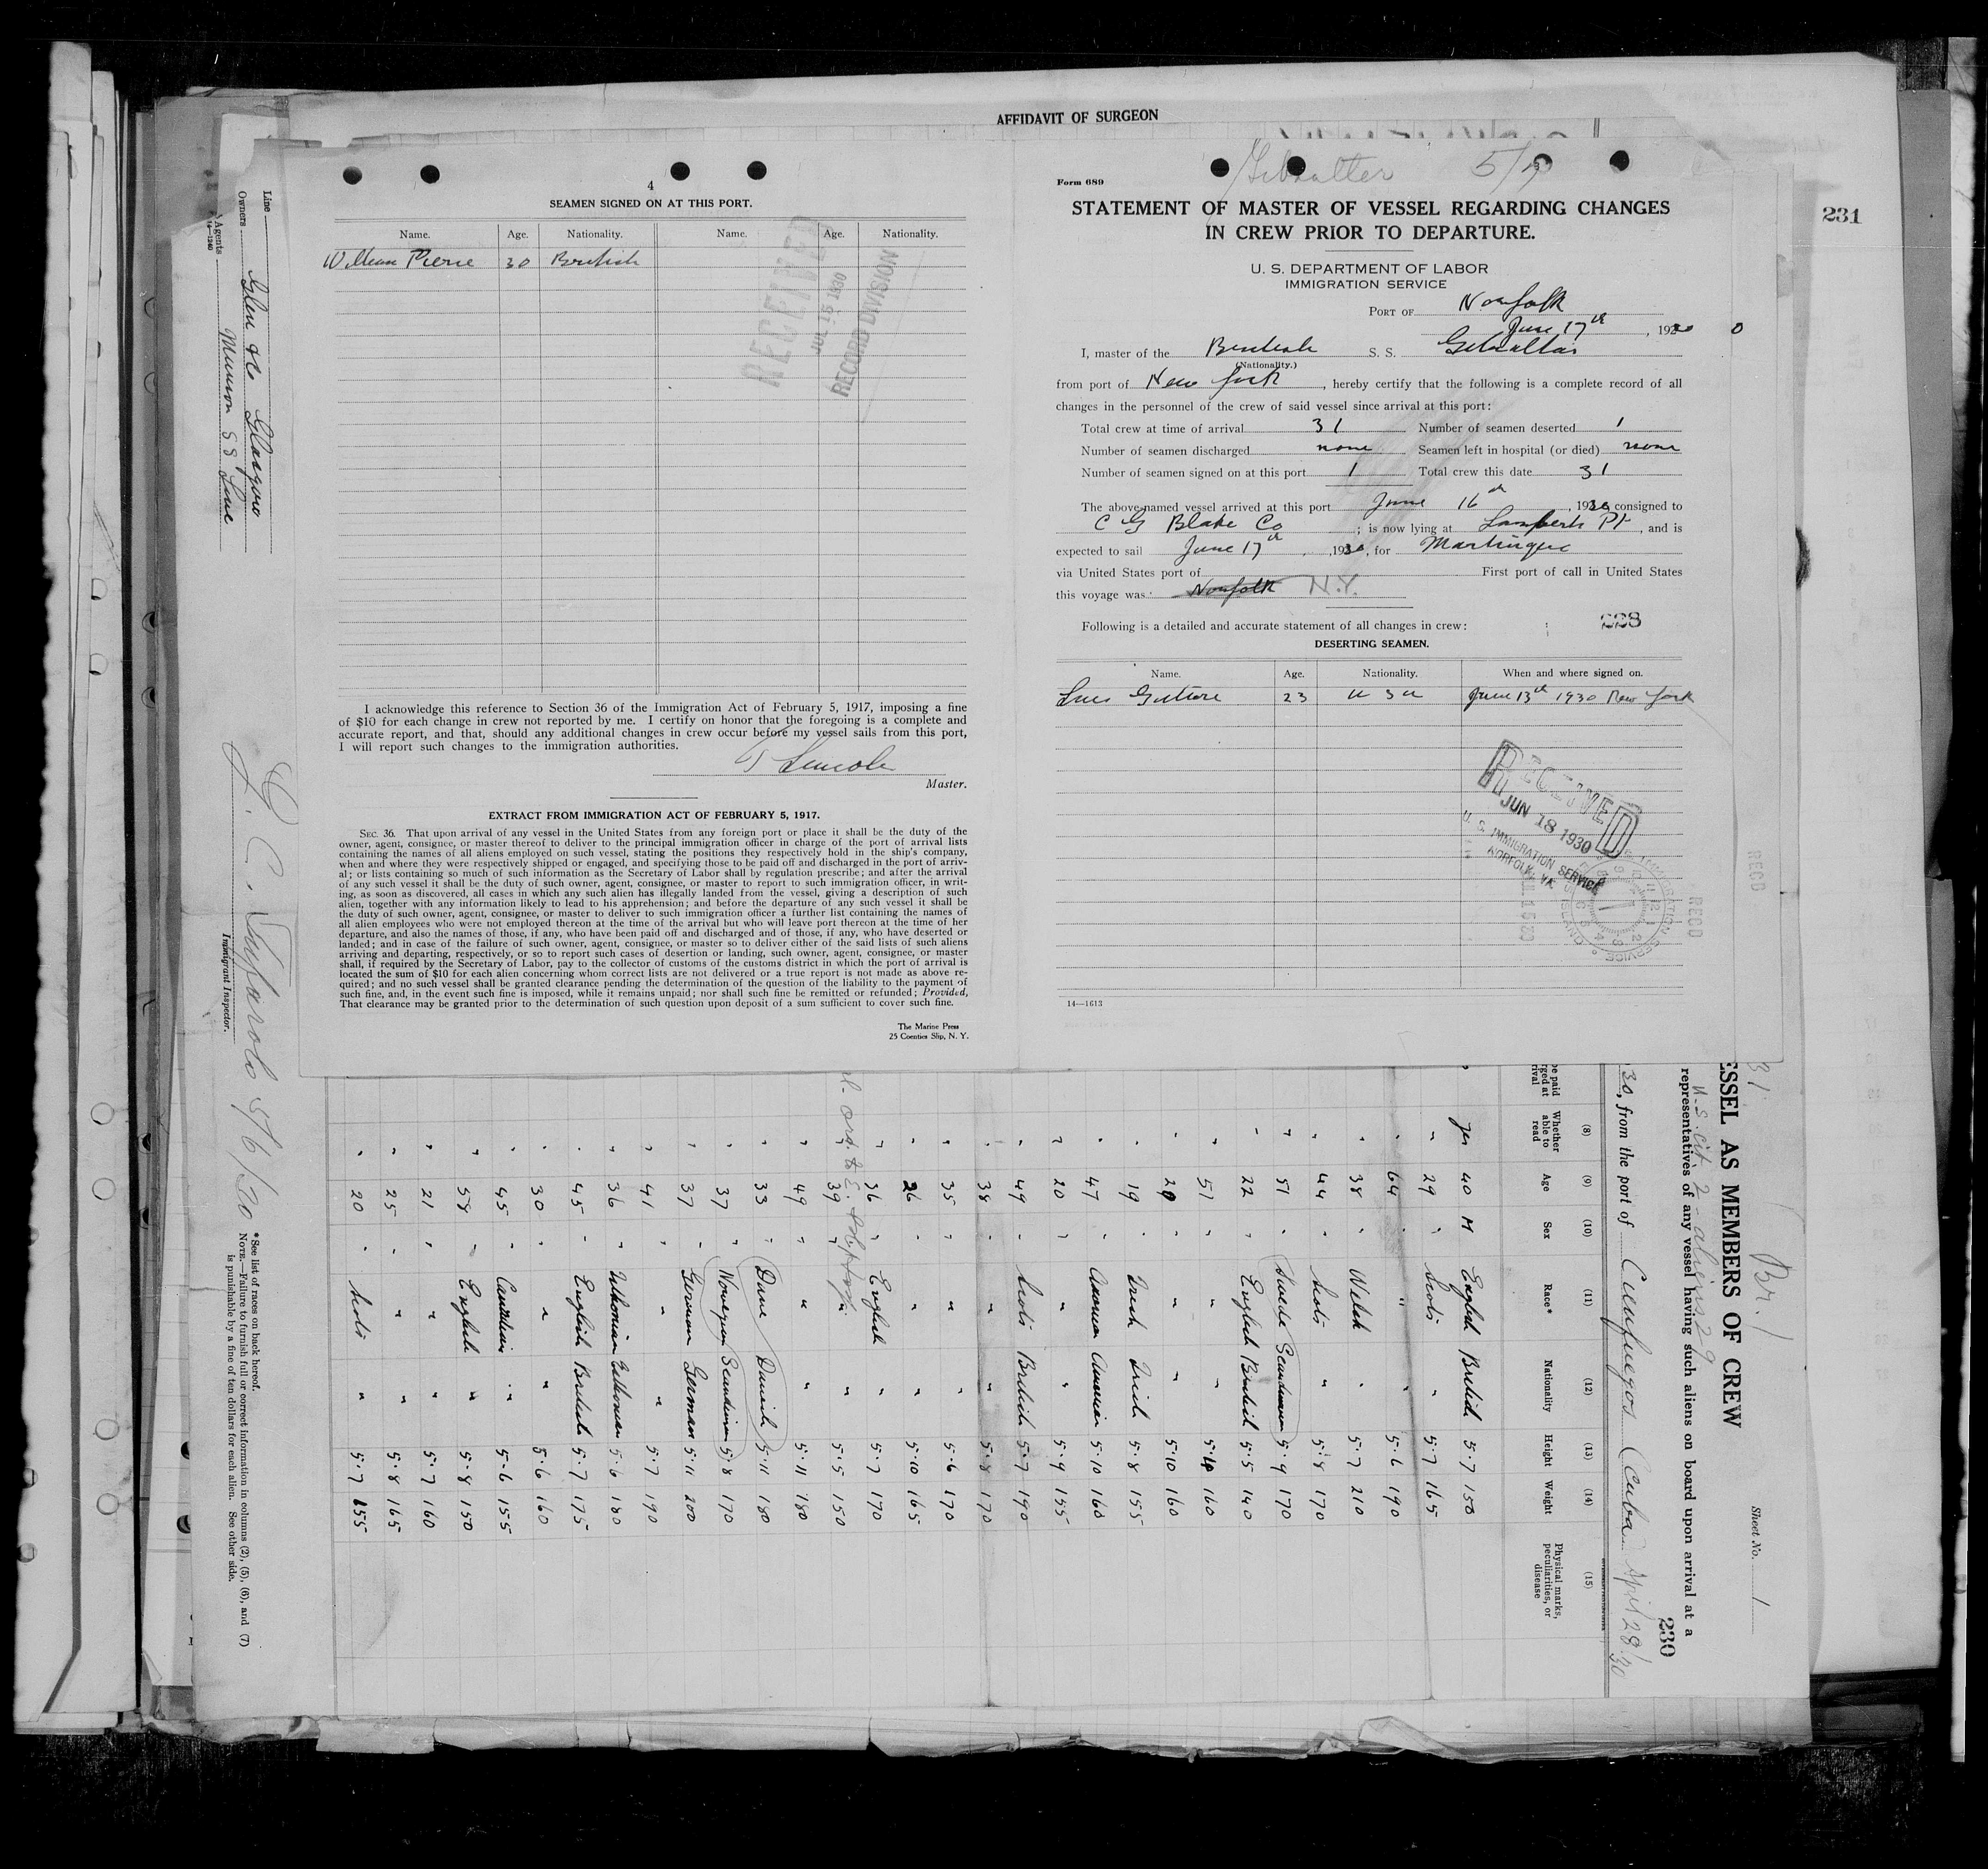 AFFIDAVIT OF SURGEON
4
SEAMEN SIGNED ON AT THIS PORT.
Name. Age. Nationality. Name. Age. Nationality.
William Pierie 30 British
RECEIVED
JUL 15 1930
RECORD DIVISION
I acknowledge this reference to Section 36 of the Immigration Act of February 5, 1917, imposing a fine
of $10 for each change in crew not reported by me. I certify on honor that the foregoing is a complete and
accurate report, and that, should any additional changes in crew occur before my vessel sails from this port,
I will report such changes to the immigration authorities.
Master.
EXTRACT FROM IMMIGRATION ACT OF FEBRUARY 5, 1917.
SEC. 36. That upon arrival of any vessel in the United States from any foreign port or place it shall be the duty of the
owner, agent, consignee, or master thereof to deliver to the principal immigration officer in charge of the port of arrival lists
containing the names of all aliens employed on such vessel, stating the positions they respectively hold in the ship's company,
when and where they were respectively shipped or engaged, and specifying those to be paid off and discharged in the port of arriv-
al; or lists containing so much of such information as the Secretary of Labor shall by regulation prescribe; and after the arrival
of any such vessel it shall be the duty of such owner, agent, consignee, or master to report to such immigration officer, in writ-
ing, as soon as discovered, all cases in which any such alien has illegally landed from the vessel, giving a description of such
alien, together with any information likely to lead to his apprehension; and before the departure of any such vessel it shall be
the duty of such owner, agent, consignee, or master to deliver to such immigration officer a further list containing the names of
all alien employees who were not employed thereon at the time of the arrival but who will leave port thereon at the time of her
departure, and also the names of those, if any, who have been paid off and discharged and of those, if any, who have deserted or
landed; and in case of the failure of such owner, agent, consignee, or master so to deliver either of the said lists of such aliens
arriving and departing, respectively, or so to report such cases of desertion or landing, such owner, agent, consignee, or master
shall, if required by the Secretary of Labor, pay to the collector of customs of the customs district in which the port of arrival is
located the sum of $10 for each alien concerning whom correct lists are not delivered or a true report is not made as above re-
quired; and no such vessel shall be granted clearance pending the determination of the question of the liability to the payment of
such fine, and, in the event such fine is imposed, while it remains unpaid; nor shall such fine be remitted or refunded; Provided,
That clearance may be granted prior to the determination of such question upon deposit of a sum sufficient to cover such fine.
The Marine Press
25 Coenties Slip, N. Y.
Gibralter 5/
Form 689
STATEMENT OF MASTER OF VESSEL REGARDING CHANGES
IN CREW PRIOR TO DEPARTURE.
U. S. DEPARTMENT OF LABOR
IMMIGRATION SERVICE
PORT OF Norfolk
June 17th, 1930
I, master of the British S. S. Gibraltar
(Nationality.)
from port of New York, hereby certify that the following is a complete record of all
changes in the personnel of the crew of said vessel since arrival at this port:
Total crew at time of arrival 31 Number of seamen deserted 1
Number of seamen discharged none Seamen left in hospital (or died) none
Number of seamen signed on at this port 1 Total crew this date 31
The above-named vessel arrived at this port June 16th, 1930 consigned to
C G Blake Co; is now lying at Lamberts Pt, and is
expected to sail June 17th, 1930, for Martinique
via United States port of First port of call in United States
this voyage was: Norfolk N.Y.
Following is a detailed and accurate statement of all changes in crew:
228
DESERTING SEAMEN.
Name. Age. Nationality. When and where signed on.
23 U S A June 13th 1930 New York
RECEIVED
JUN 18 1930
U. S. IMMIGRATION SERVICE
NORFOLK, VA.
RECD
RECD
14—1613
231
Line
Owners Glen & Co Glasgow
Agents Munson S S Line
14—1240
5/6/30
Immigrant Inspector.
* See list of races on back hereof.
NOTE.—Failure to furnish full or correct information in columns (2), (5), (6), and (7)
is punishable by a fine of ten dollars for each alien. See other side.
Sheet No. 1
31 Br.
ESSEL AS MEMBERS OF CREW
U.S. cit 2 - aliens 29
representatives of any vessel having such aliens on board upon arrival at a
230
30, from the port of Cienfuegos Cuba April 28/30
(8) (9) (10) (11) (12) (13) (14) (15)
Whether able to read Age Sex Race* Nationality Height Weight Physical marks, peculiarities, or disease
yes 40 M English British 5.7 150
" 29 " Scots " 5.7 165
" 64 " " " 5.6 190
" 38 " Welsh " 5.7 210
" 44 " Scots " 5.8 170
" 51 " Swede Scandinavian 5.9 170
" 22 " English British 5.5 140
" 51 " " " 5.4 160
" 29 " " " 5.10 160
" 19 " Irish Irish 5.8 155
" 47 " American American 5.10 160
" 20 " " " 5.9 155
" 49 " Scots British 5.7 190
" 38 " " " 5.8 170
" 35 " " " 5.6 170
" 26 " " " 5.10 165
" 36 " English " 5.7 170
" 39 " " " 5.5 150
" 49 " " " 5.11 180
" 33 " Dane Danish 5.11 180
" 37 " Norwegian Scandinavian 5.8 170
" 37 " German German 5.11 200
" 41 " " " 5.7 190
" 36 " Esthonian Esthonian 5.6 180
" 45 " English British 5.7 175
" 30 " " " 5.6 160
" 45 " Canadian " 5.6 155
" 58 " English " 5.8 150
" 21 " " " 5.7 160
" 25 " " " 5.8 165
" 20 " Scots " 5.7 155